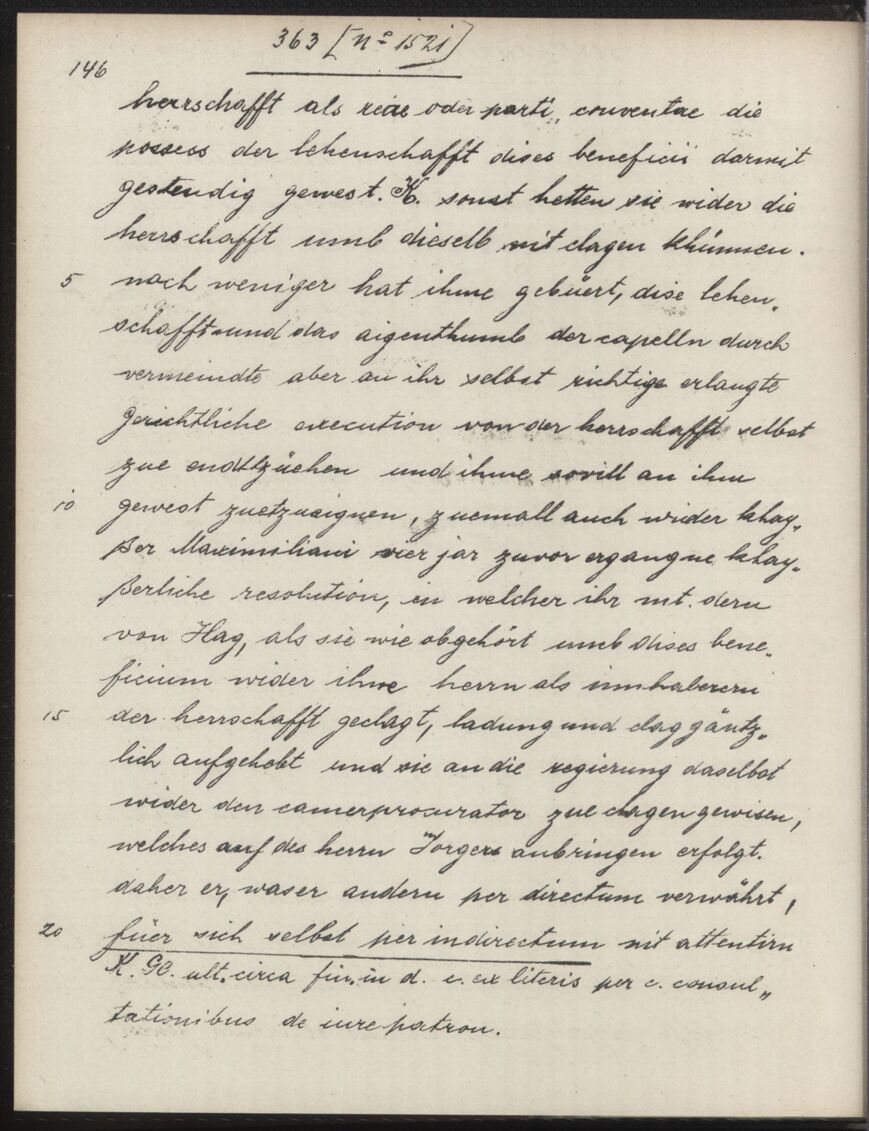 363 [nº 1521]
146
herrschafft als reae oder parti conventae die
possess der lehenschafft dises beneficii darmit
gestendig gewest. K. sonst hetten sie wider die
herrschafft umb dieselb nit clagen khünnen.
5 noch weniger hat ihme gebüert, dise lehen„
schafft und das aigenthumb der capelln durch
vermeindte aber an ihr selbst richtige erlangte
gerichtliche execution von der herrschafft selbst
zue endtzüehen und ihme sovill an ihm
10 gewest zuetzuaignen, zuemall auch wider khay„
ßer Maximiliani vier jar zuvor ergangne khay„
ßerliche resolution, in welcher ihr mt. dern
von Hag, als sie wie obgehört umb dises bene„
ficium wider ihne herrn als innhaberern
15 der herrschafft geclagt, ladung und clag gäntz„
lich aufgehebt und sie an die regierung daselbst
wider den camerprocurator zue clagen gewisen,
welches auf des herrn Jorgers anbringen erfolgt.
daher er, was er andern per directum verwährt,
20 füer sich selbst per indirectum nit attentirn
K. GC. ult. circa fin. in d. c. ex literis per c. consul„
tationibus de iure patron.